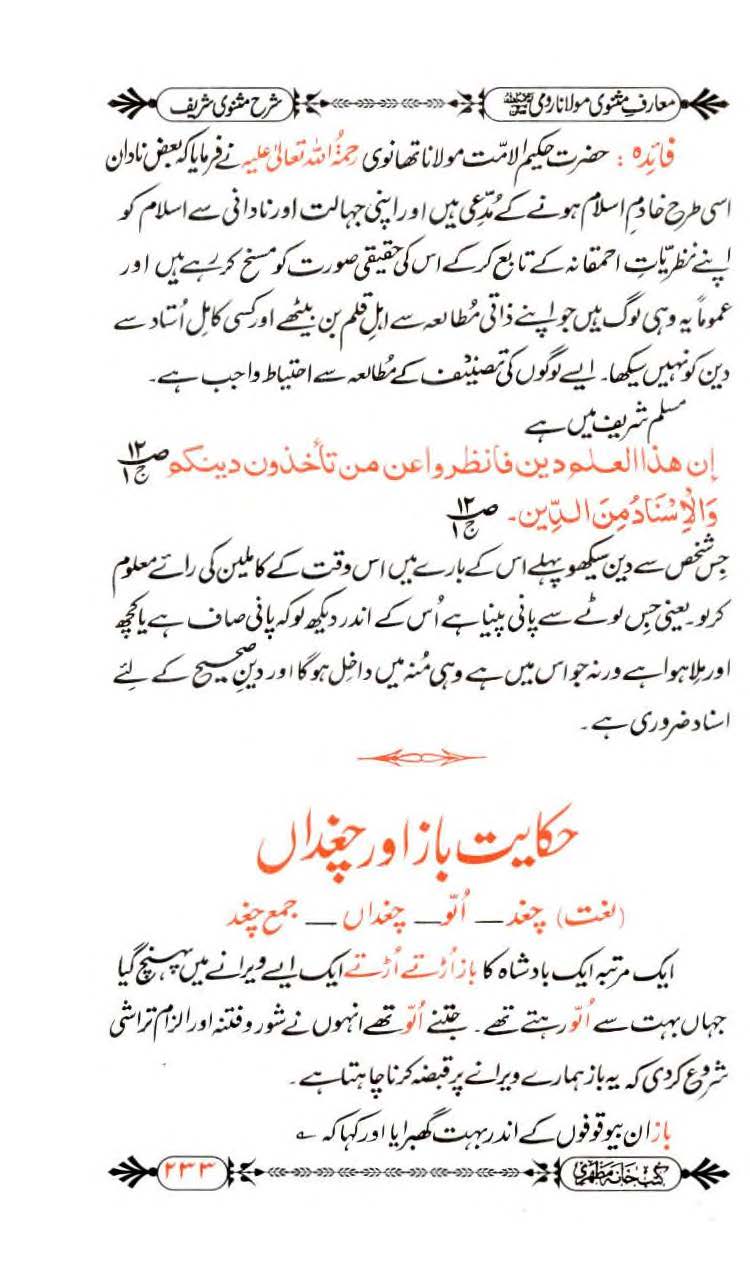 معارفِ مثنوی مولانا رومی رحمۃ اللہ علیہ
شرح مثنوی شریف
فائدہ : حضرت حکیم الامّت مولانا تھانوی رحمۃُ اللہ تعالیٰ علیہ نے فرمایا کہ بعض نادان
اسی طرح خادمِ اسلام ہونے کے مُدّعی ہیں اور اپنی جہالت اور نادانی سے اسلام کو
اپنے نظریّاتِ احمقانہ کے تابع کر کے اس کی حقیقی صورت کو مسخ کر رہے ہیں اور
عموماً یہ وہی لوگ ہیں جو اپنے ذاتی مُطالعہ سے اہلِ قلم بن بیٹھے اور کسی کامل اُستاد سے
دین کو نہیں سیکھا۔ ایسے لوگوں کی تصنیف کے مُطالعہ سے احتیاط واجب ہے۔
مسلم شریف میں ہے
إن هذا العلم دين فانظروا عن من تأخذون دينكم ص۱۲ ج۱
وَالْإِسْنَادُ مِنَ الدِّين۔ ص۱۲ ج۱
جس شخص سے دین سیکھو پہلے اس کے بارے میں اس وقت کے کاملین کی رائے معلوم
کر لو۔ یعنی جس لوٹے سے پانی پینا ہے اُس کے اندر دیکھ لو کہ پانی صاف ہے یا کچھ
اور مِلا ہوا ہے ورنہ جو اس میں ہے وہی مُنہ میں داخل ہو گا اور دینِ صحیح کے لئے
اسناد ضروری ہے۔
حکایت باز اور چغداں
(لغت) چغد — اُلّو — چغداں — جمع چغد
ایک مرتبہ ایک بادشاہ کا باز اُڑتے اُڑتے ایک ایسے ویرانے میں پہنچ گیا
جہاں بہت سے اُلّو رہتے تھے۔ جتنے اُلّو تھے انہوں نے شور و فتنہ اور الزام تراشی
شروع کر دی کہ یہ باز ہمارے ویرانے پر قبضہ کرنا چاہتا ہے۔
باز ان بیوقوفوں کے اندر بہت گھبرایا اور کہا کہ ؎
کتب خانہ مظہری
۲۳۳